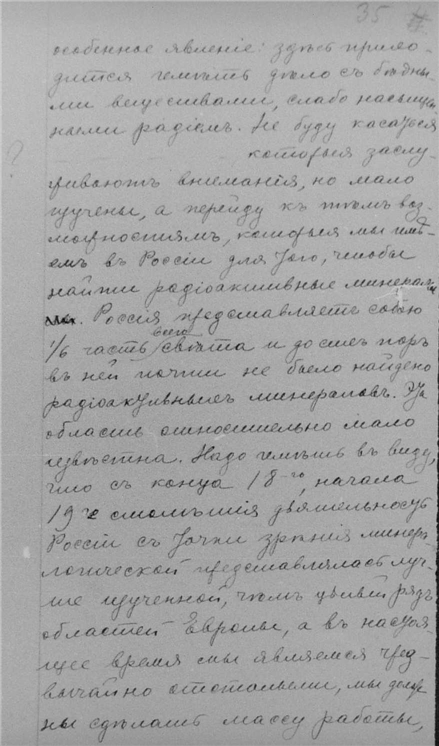 35
особенное явленіе: здѣсь прихо-
дится имѣть дѣло съ бѣдны-
ми веществами, слабо насыщен
ными радіемъ. Не буду касаться
которыя заслу-
живаютъ вниманія, но мало
изучены, а перейду къ тѣмъ воз-
можностямъ, которыя мы имѣ-
емъ въ Россіи для того, чтобы
найти радіоактивные минералы
Россія представляетъ собою
1/6 часть всего свѣта и до сихъ поръ
въ ней почти не было найдено
радіоактивныхъ минераловъ. Эта
область относительно мало
извѣстна. Надо имѣть въ виду,
что съ конца 18-го, начала
19го дѣятельность
Россіи съ точки зрѣнія минера-
логической представлялась луч-
ше изученной, чѣмъ цѣлый рядъ
областей Европы, а въ настоя-
щее время мы являемся чрез-
вычайно отсталыми, мы долж-
ны сдѣлать массу работы,